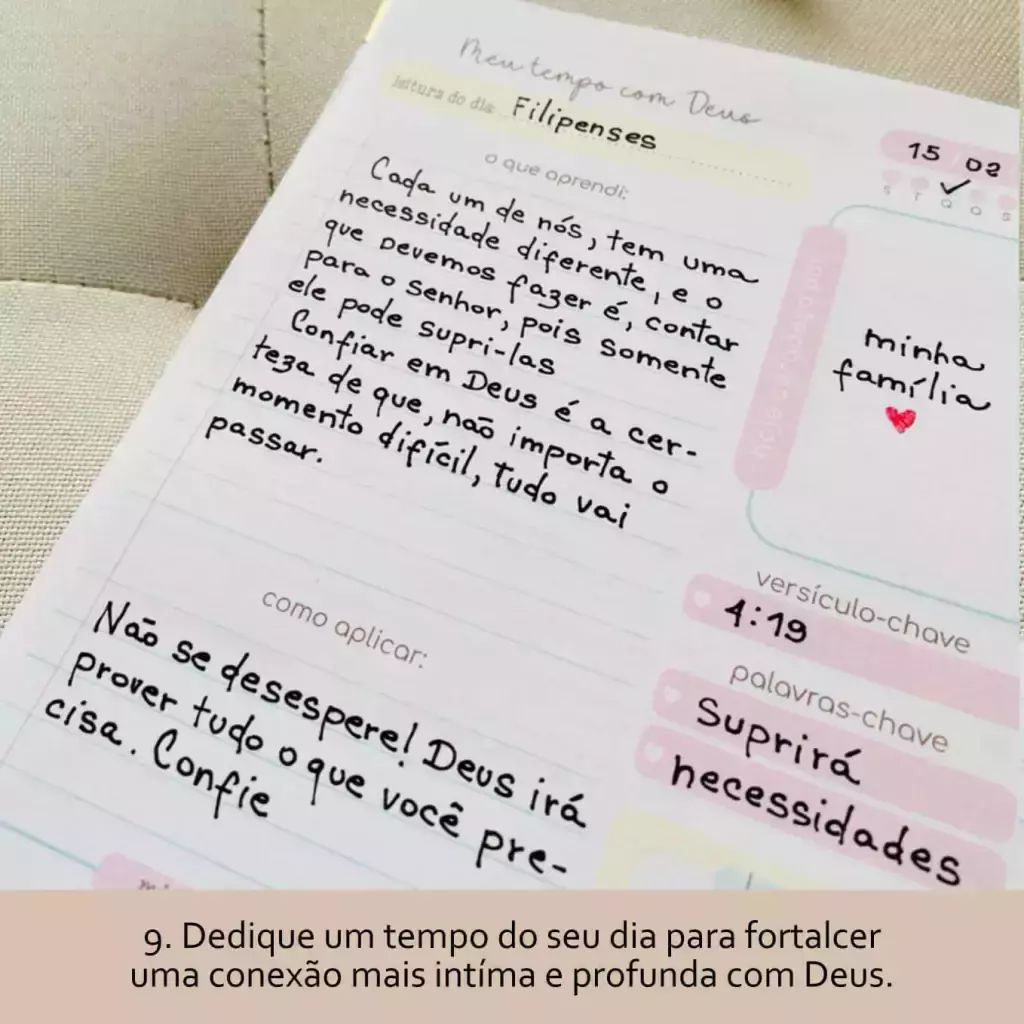 Meu tempo com Deus
leitura do dia Filipenses
15 02
S T Q Q S
o que aprendi:
Cada um de nós, tem uma
necessidade diferente, e o
que devemos fazer é, contar
para o senhor, pois somente
ele pode supri-las
Confiar em Deus é a cer-
teza de que, não importa o
momento difícil, tudo vai
passar.
hoje agradeço por
minha
família
versículo-chave
4:19
palavras-chave
Suprirá
necessidades
como aplicar:
Não se desespere! Deus irá
prover tudo o que você pre-
cisa. Confie
9. Dedique um tempo do seu dia para fortalcer
uma conexão mais intíma e profunda com Deus.